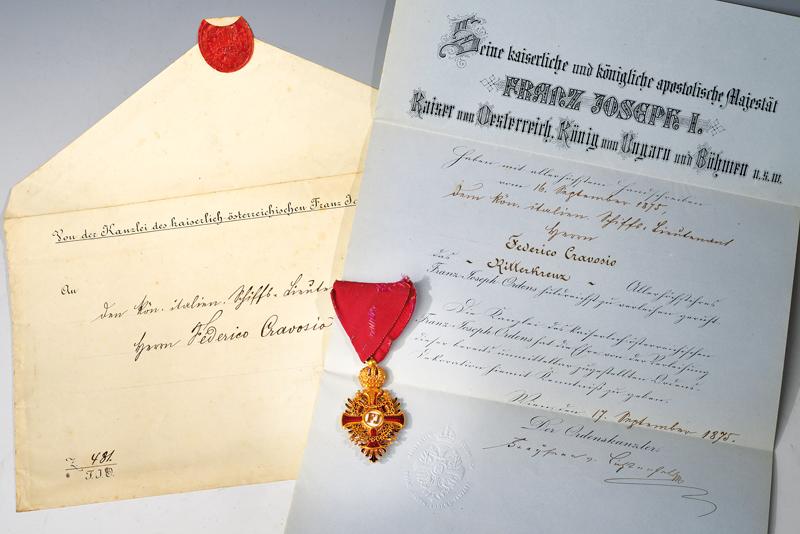 Von der Kanzlei des kaiserlich österreichischen Franz Jo
An
den kön. italien. Schiffs-Lieute
Herrn Federico Cravosio
Z. 481.
F.J.O.
Seine kaiserliche und königliche apostolische Majestät
FRANZ JOSEPH I.
Kaiser von Oesterreich, König von Ungarn und Böhmen u.s.w.
haben mit allerhöchstem Handschreiben
vom 16. September 1875,
dem kön. italien. Schiffs-Lieutenant
Herrn
Federico Cravosio
das "Ritterkreuz" Allerhöchstihres
Franz-Joseph-Ordens huldreichst zu verleihen geruht.
Die Kanzlei des kaiserlich österreichischen
Franz-Joseph-Ordens hat die Ehre von der Verleihung
dieser bereits unmittelbar zugestellten Ordens-
Dekoration hiemit Kenntniß zu geben.
Wien, den 17. September 1875.
Der Ordenskanzler:
FJ